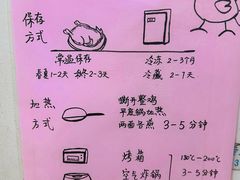 保存
方式
常温保存
春夏1-2天 秋冬2-3天
冷冻 2-3个月
冷藏 2-7天
加热
方式
撕开整鸡
平底锅加热
两面各煎 3-5分钟
烤箱 180℃-200℃
空气炸锅 3-5分钟